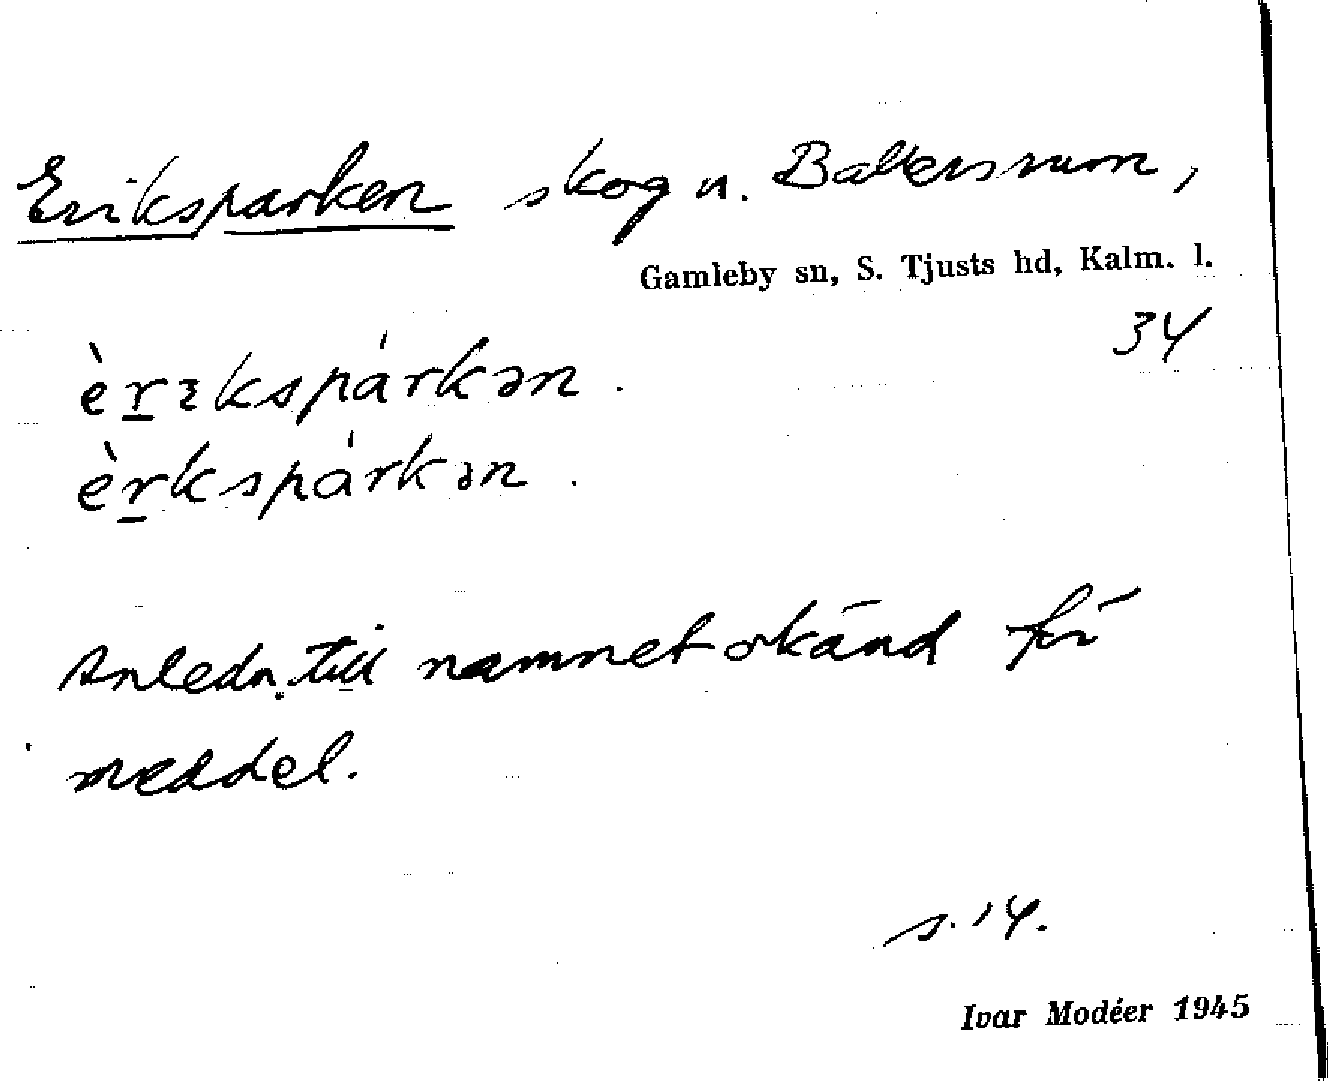 Eriksparken skog u. Baltersrum,
Gamleby sn, S. Tjusts hd, Kalm. l.
34
èrɪkspárkən.
èrkspárkən.
Anledn. till namnet okänd för
meddel.
s. 14.
Ivar Modéer 1945